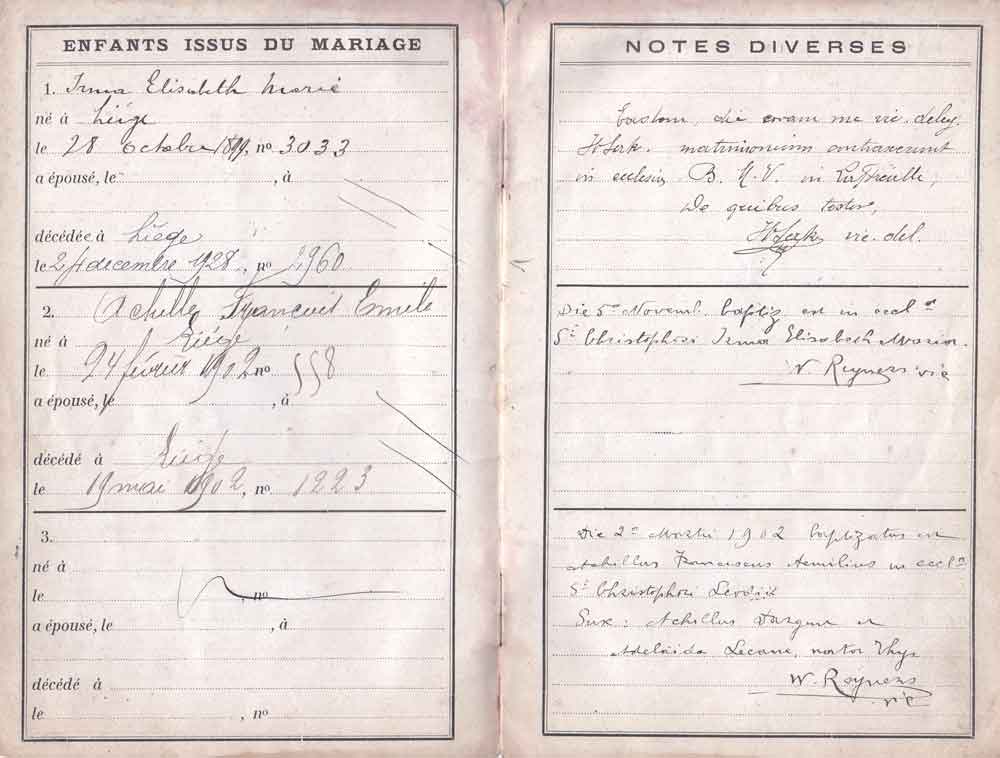 ENFANTS ISSUS DU MARIAGE
1. Irma Elisabeth Marie
né à Liége
le 28 Octobre 1899, nº 3033
a épousé, le , à
décédée à Liége
le 24 decembre 1928, nº 2960
2. Achille François Emile
né à Liége
le 24 février 1902 nº 558
a épousé, le , à
décédé à Liége
le 19 mai 1902, nº 1223
3.
né à
le , nº
a épousé, le , à
décédé à
le , nº
NOTES DIVERSES
die coram me vic. deleg.
matrimonium contraxerunt
in ecclesia B. M. V. in
De quibus testor,
vic. del.
Die 5ª Novemb. baptiz est in eccl ª
Sti Christophori Irma Elisabeth Maria.
W Reyners vic
Die 2ª Martii 1902 baptizatus est
Achillus Franciscus Aemilius in eccl ª
Sti Christophori Leodii
Sux: Achillus et
Adelaïda
W. Reyners
vic